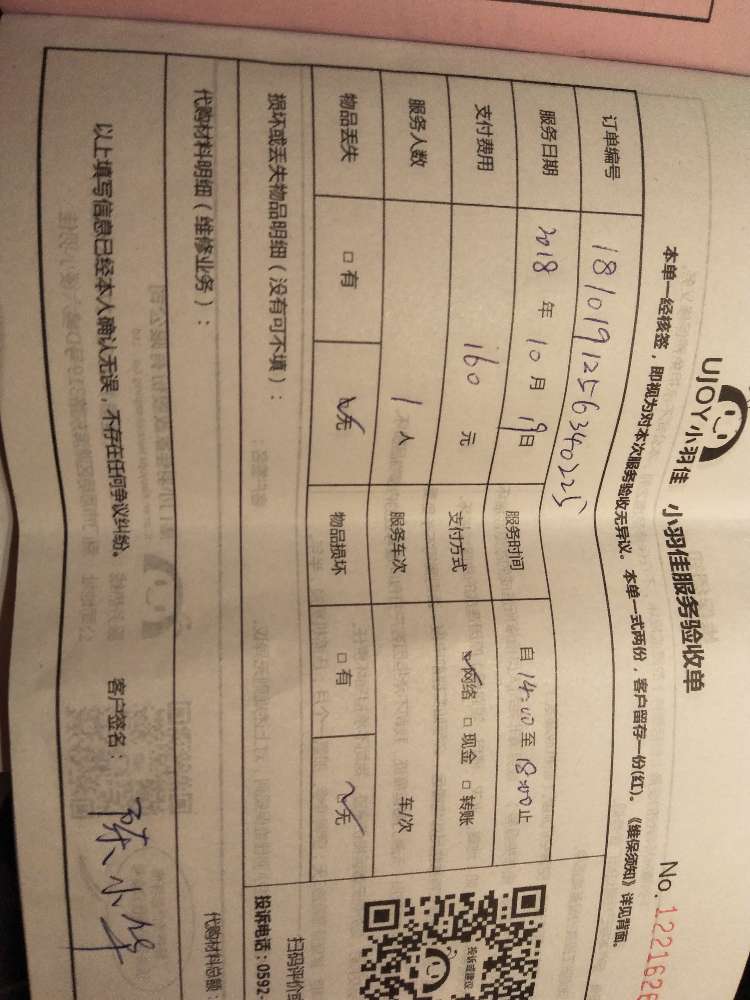 UJOY小羽佳 小羽佳服务验收单 No. 1221628
本单一经核签，即视为对本次服务验收无异议。本单一式两份，客户留存一份(红)。《维保须知》详见背面。
订单编号 1810191256340225
服务日期 2018 年 10 月 19 日 服务时间 自 14:00 至 18:00 止
支付费用 160 元 支付方式 ☑网络 □现金 □转账
服务人数 1 人 服务车次 车/次
物品丢失 □有 ☑无 物品损坏 □有 ☑无
损坏或丢失物品明细（没有可不填）：
投诉或建议
扫码评价
投诉电话：0592-
代购材料明细（维修业务）：
代购材料总额：
以上填写信息已经本人确认无误，不存在任何争议纠纷。 客户签名： 陈小华